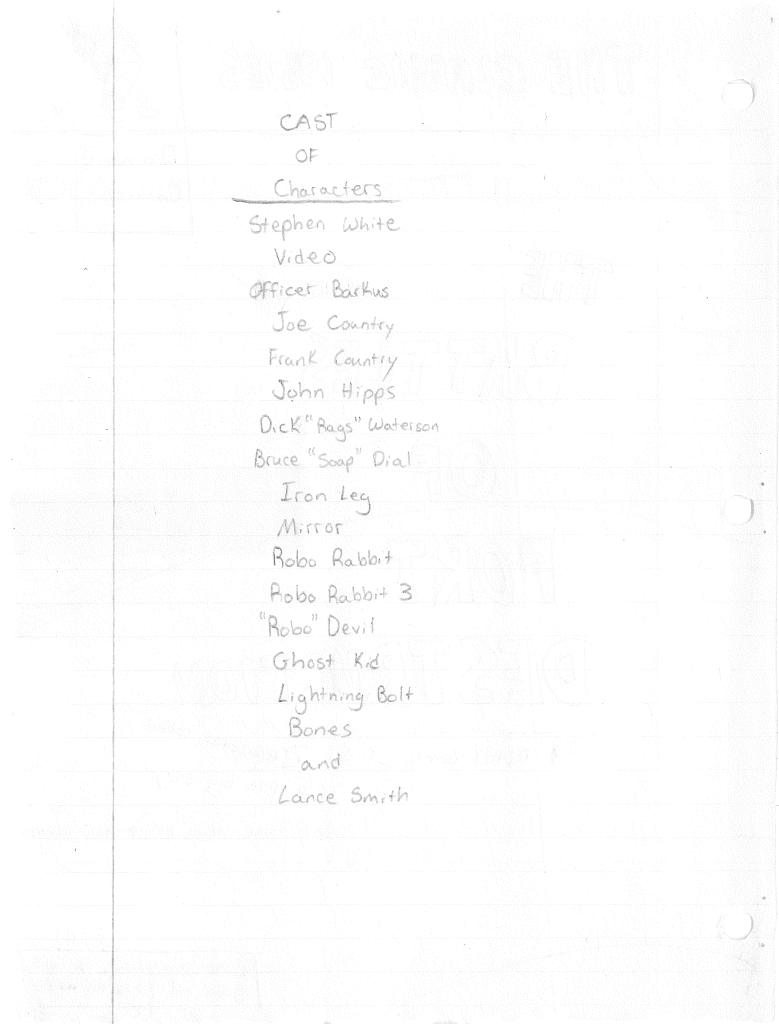 CAST
OF
Characters
Stephen White
Video
Officer Barkus
Joe Country
Frank Country
John Hipps
Dick "Rags" Waterson
Bruce "Soap" Dial
Iron Leg
Mirror
Robo Rabbit
Robo Rabbit 3
"Robo" Devil
Ghost Kid
Lightning Bolt
Bones
and
Lance Smith